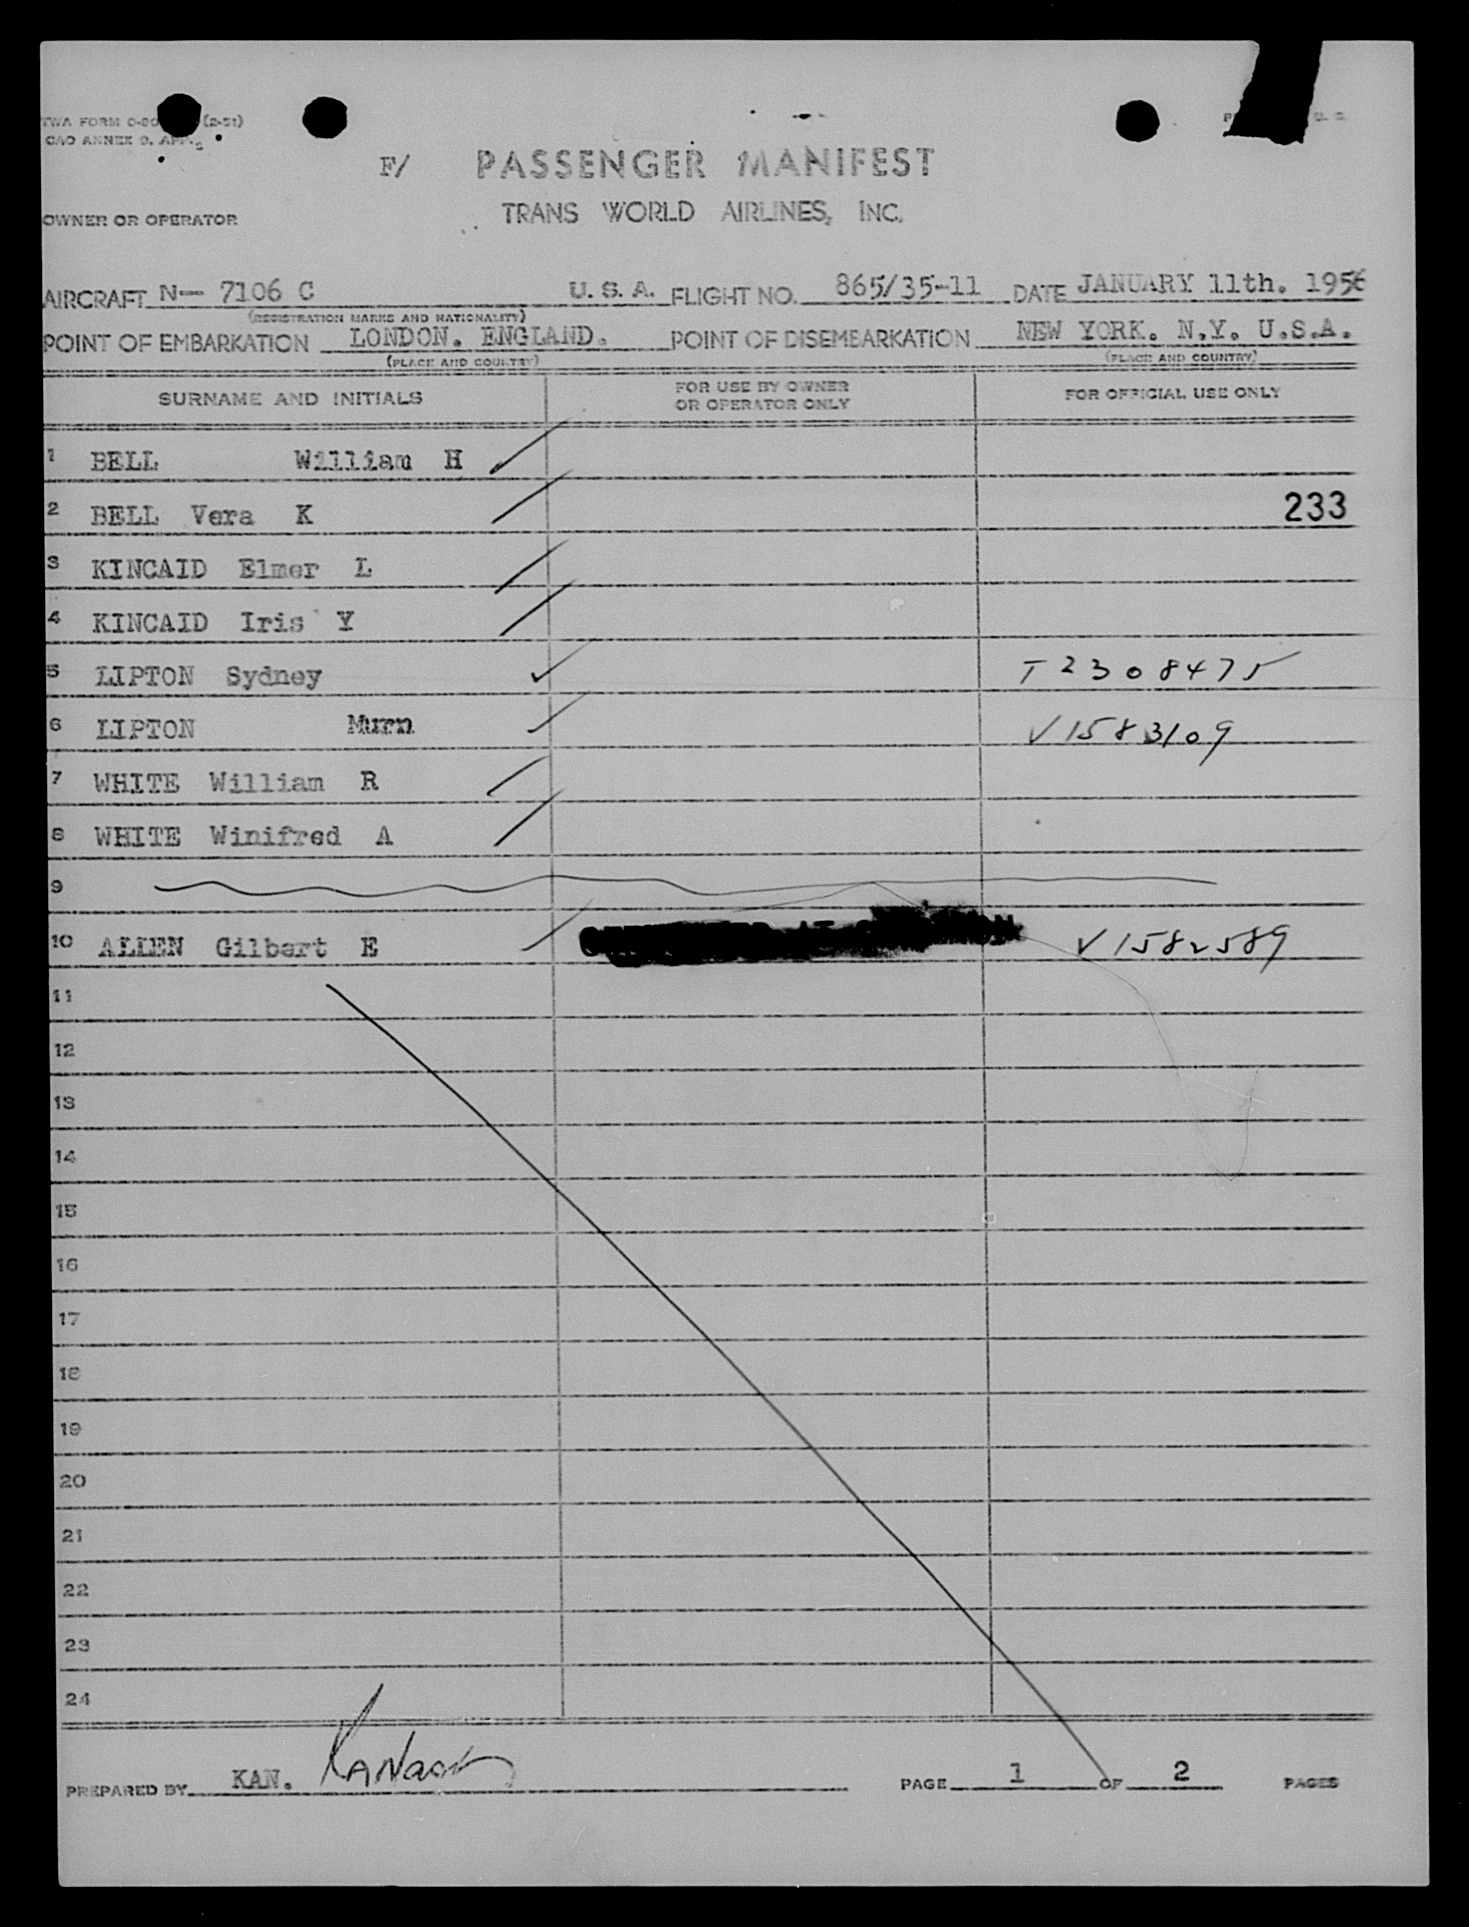 TWA FORM (2-51)
CAO ANNEX 9.
F/ PASSENGER MANIFEST
OWNER OR OPERATOR TRANS WORLD AIRLINES, INC.
AIRCRAFT N- 7106 C U. S. A. FLIGHT NO. 865/35-11 DATE JANUARY 11th. 1956
(REGISTRATION MARKS AND NATIONALITY)
POINT OF EMBARKATION LONDON. ENGLAND. POINT OF DISEMBARKATION NEW YORK. N.Y. U.S.A.
(PLACE AND COUNTRY) (PLACE AND COUNTRY)
SURNAME AND INITIALS FOR USE BY OWNER OR OPERATOR ONLY FOR OFFICIAL USE ONLY
1 BELL William H
2 BELL Vera K 233
3 KINCAID Elmer L
4 KINCAID Iris Y
5 LIPTON Sydney T2308475
6 LIPTON Murn V1583109
7 WHITE William R
8 WHITE Winifred A
9
10 ALLEN Gilbert E V1582589
11
12
13
14
15
16
17
18
19
20
21
22
23
24
PREPARED BY KAN. PAGE 1 OF 2 PAGES